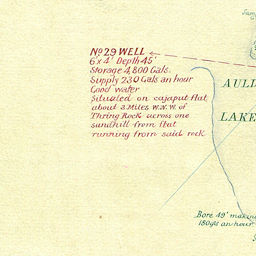 No 29 WELL
6' x 4' Depth 45'
Storage 4,800 Gals.
Supply 230 Gals an hour
Good water
Situated on cajaput flat
about 3 Miles W.N.W. of
Thring Rock across one
sandhill from flat
running from said rock
AULD
LAKE
Bore 49' making
180 gs an hour